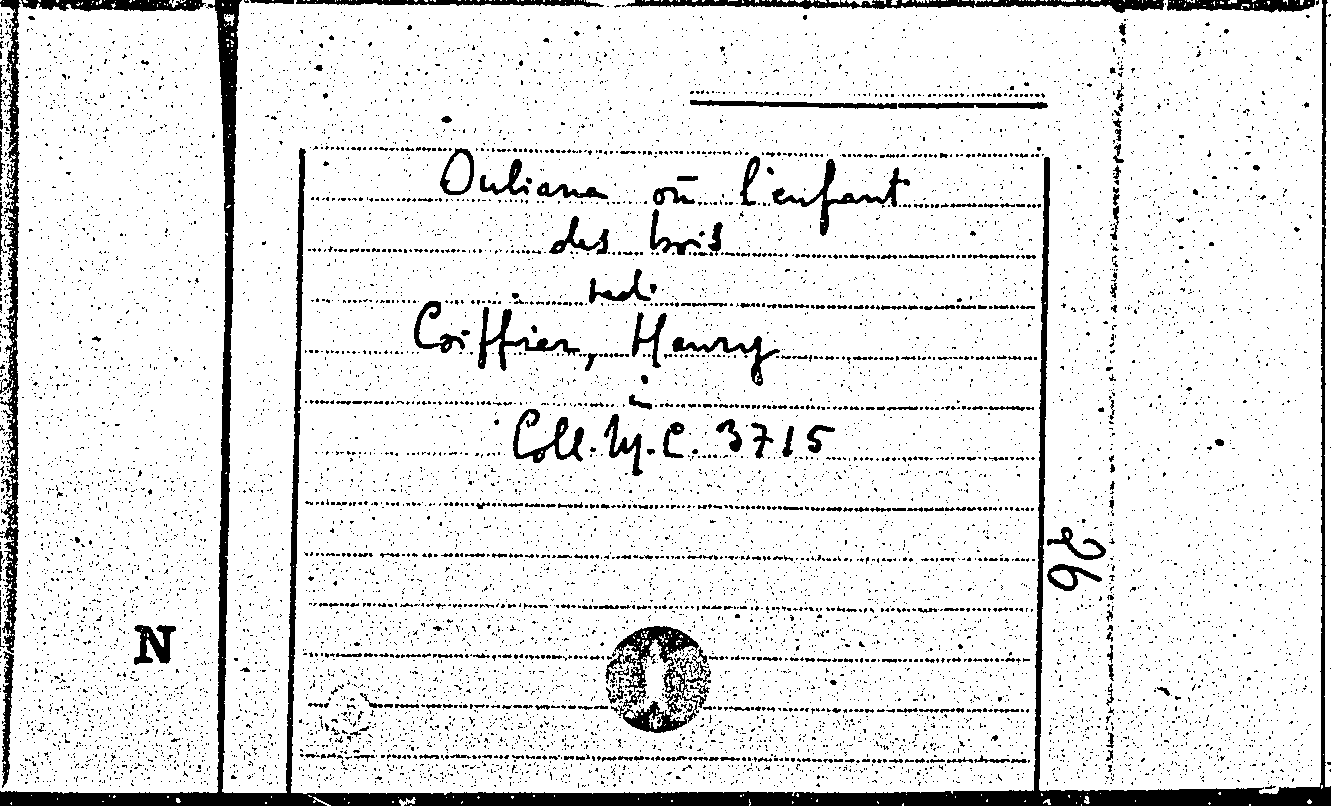 Ouliana ou l'enfant
des bois
vedi
Coiffier, Henry
in
Coll. M. C. 3715
26
N